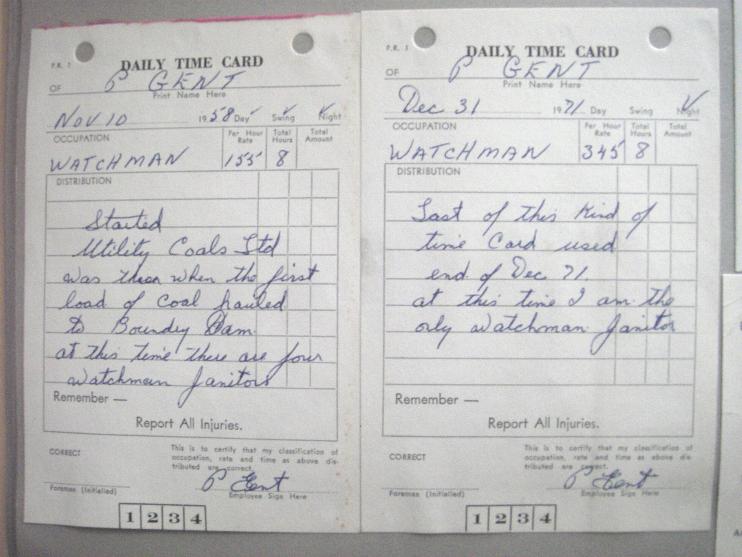 P.R. 1
DAILY TIME CARD
OF P GENT
Print Name Here
Nov 10 1958 Day Swing Night
OCCUPATION Per Hour Rate Total Hours Total Amount
WATCHMAN 155 8
DISTRIBUTION
Started
Utility Coals Ltd
was thear when the first
load of coal hauled
to Boundry Dam
at this time there are four
watchman Janitors
Remember —
Report All Injuries.
CORRECT
This is to certify that my classification of
occupation, rate and time as above dis-
tributed are correct.
P Gent
Foreman (Initialled) Employee Sign Here
1 2 3 4
P.R. 1
DAILY TIME CARD
OF P GENT
Print Name Here
Dec 31 1971 Day Swing Night
OCCUPATION Per Hour Rate Total Hours Total Amount
WATCHMAN 345 8
DISTRIBUTION
Last of this Kind of
time Card used
end of Dec 71.
at this time I am the
only watchman Janitor
Remember —
Report All Injuries.
CORRECT
This is to certify that my classification of
occupation, rate and time as above dis-
tributed are correct.
P Gent
Foreman (Initialled) Employee Sign Here
1 2 3 4